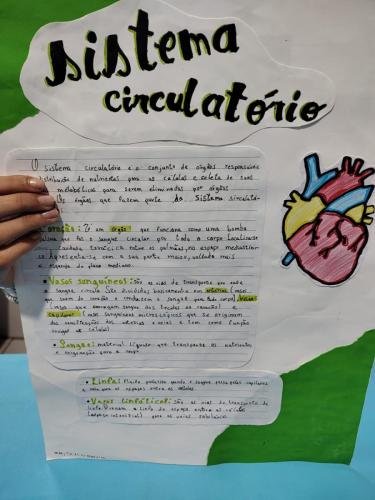 sistema
circulatório
O sistema circulatório é o conjunto de órgãos responsáveis
distribuição de nutrientes para as células e coleta de suas
metabólicas para serem eliminadas por órgãos
Os órgãos que fazem parte do sistema circulató-
coração: É um órgão que funciona como uma bomba
que faz o sangue circular por todo o corpo localiza-se
cavidade torácica entre os pulmões, no espaço mediastino
Apresenta-se com a sua parte maior, voltada mais
esquerda do plano mediano.
• Vasos sanguíneos: São as vias de transporte por onde
sangue circula. São divididos basicamente em artérias (vasos
que saem do coração e conduzem o sangue para todo corpo), Veias
(vasos que carregam sangue dos tecidos ao coração) e
capilares (vasos sanguíneos microscópicos que se originam
das ramificações das artérias e veias e tem como função
• Sangue: material líquido que transporta os nutrientes
e oxigenação para o corpo
• Linfa: fluido
para os espaços entre as células
• Vasos linfáticos: são as vias de transporte da
linfa. Drenam a linfa do espaço entre as células
(espaço intersticial) para os vasos